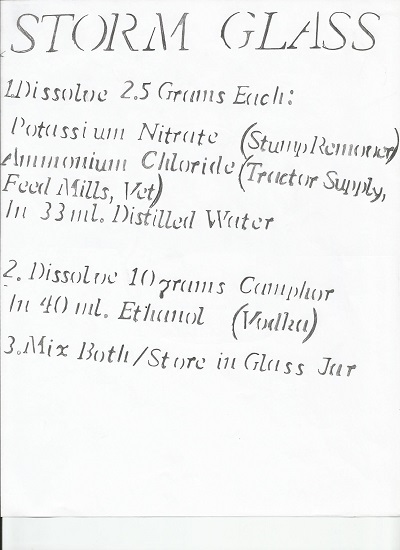 STORM GLASS
1.Dissolve 2.5 Grams Each:
Potassium Nitrate (Stump Remover)
Ammonium Chloride (Tractor Supply,
Feed Mills, Vet)
In 33 ml. Distilled Water
2. Dissolve 10 grams Camphor
In 40 ml. Ethanol (Vodka)
3.Mix Both/Store in Glass Jar